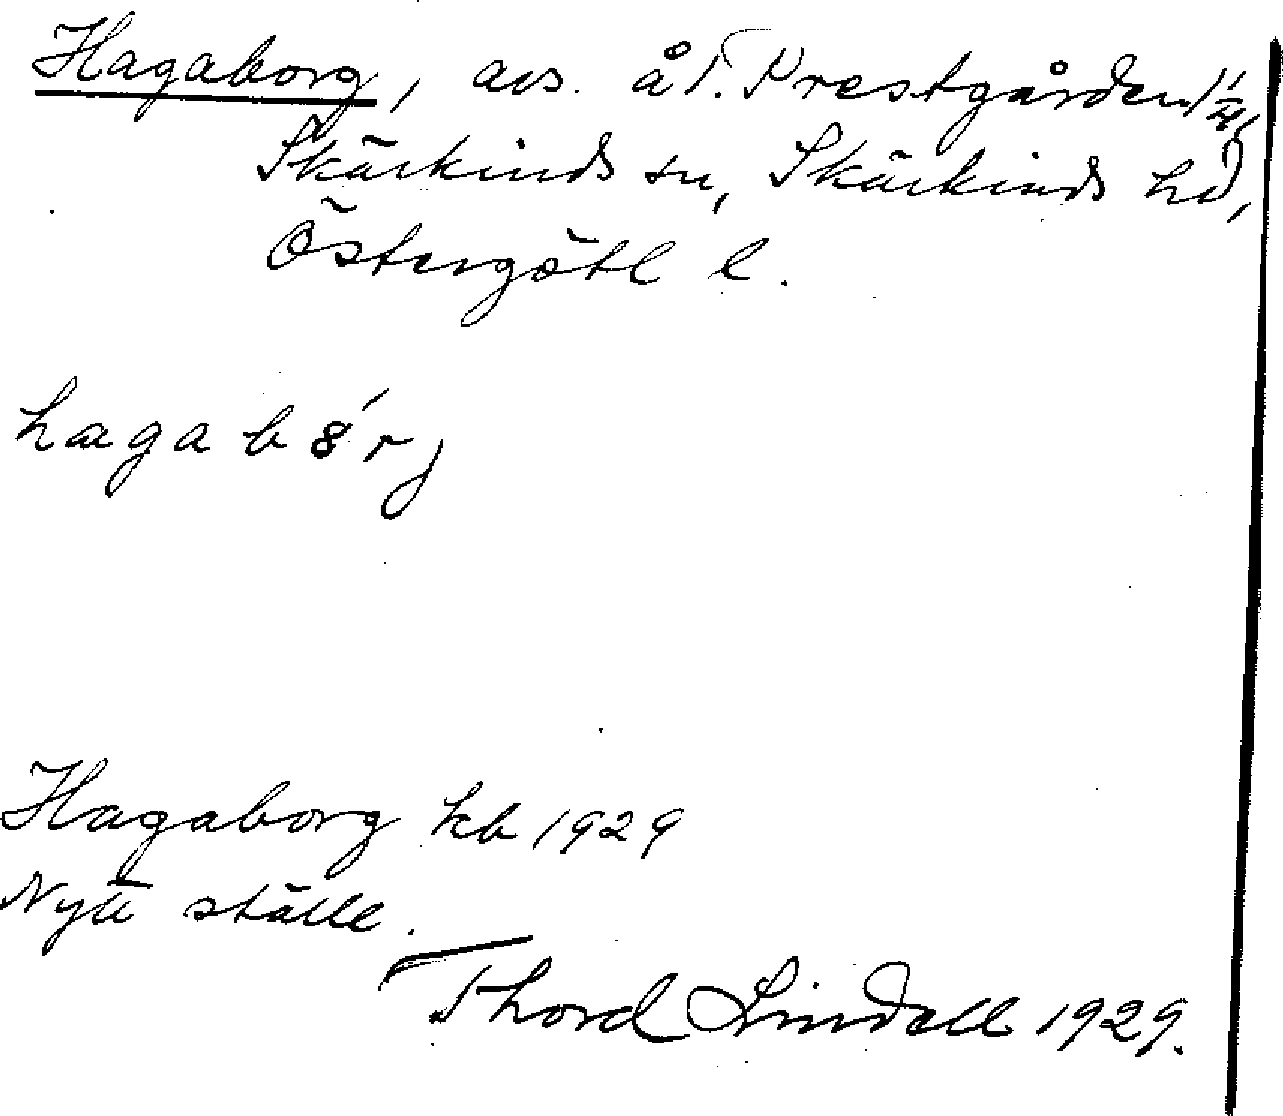 Hagaborg, avs. å T. Prestgården 1 1/4,
Skärkinds sn, Skärkinds hd,
Östergötl l.
hagabȣ́rj
Hagaborg kb 1929
Nytt ställe.
Thord Lindell 1929.